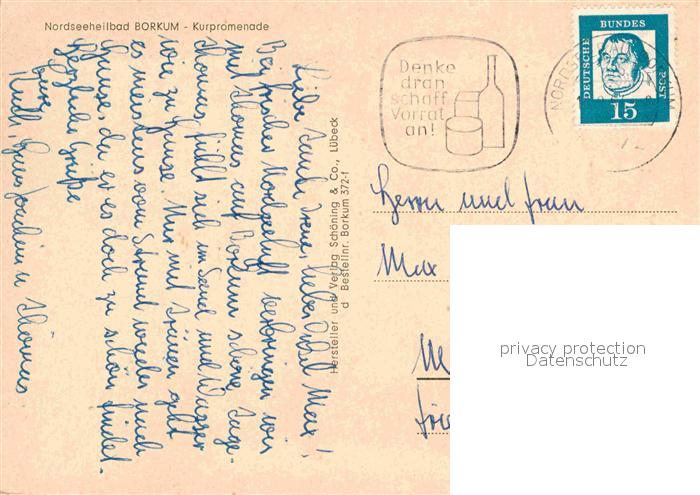 Nordseeheilbad BORKUM - Kurpromenade
Liebe Tante Irene, lieber Onkel Max!
Bei frischer Nordseeluft verbringen wir
mit Thomas auf Borkum schöne Tage.
Thomas fühlt sich im Sand und Wasser
wie zu Hause. Nur mit Tränen geht
es meistens vom Strand wieder nach
Hause, da er es doch zu schön findet.
Herzliche Grüße
Eure
Ruth, Hans Joachim u Thomas
Hersteller und Verlag Schöning & Co., Lübeck
d Bestellnr. Borkum 372-f
Denke
dran
schaff
Vorrat
an!
DEUTSCHE
BUNDES
POST
15
NORDS
Herrn und Frau
Max
privacy protection
Datenschutz